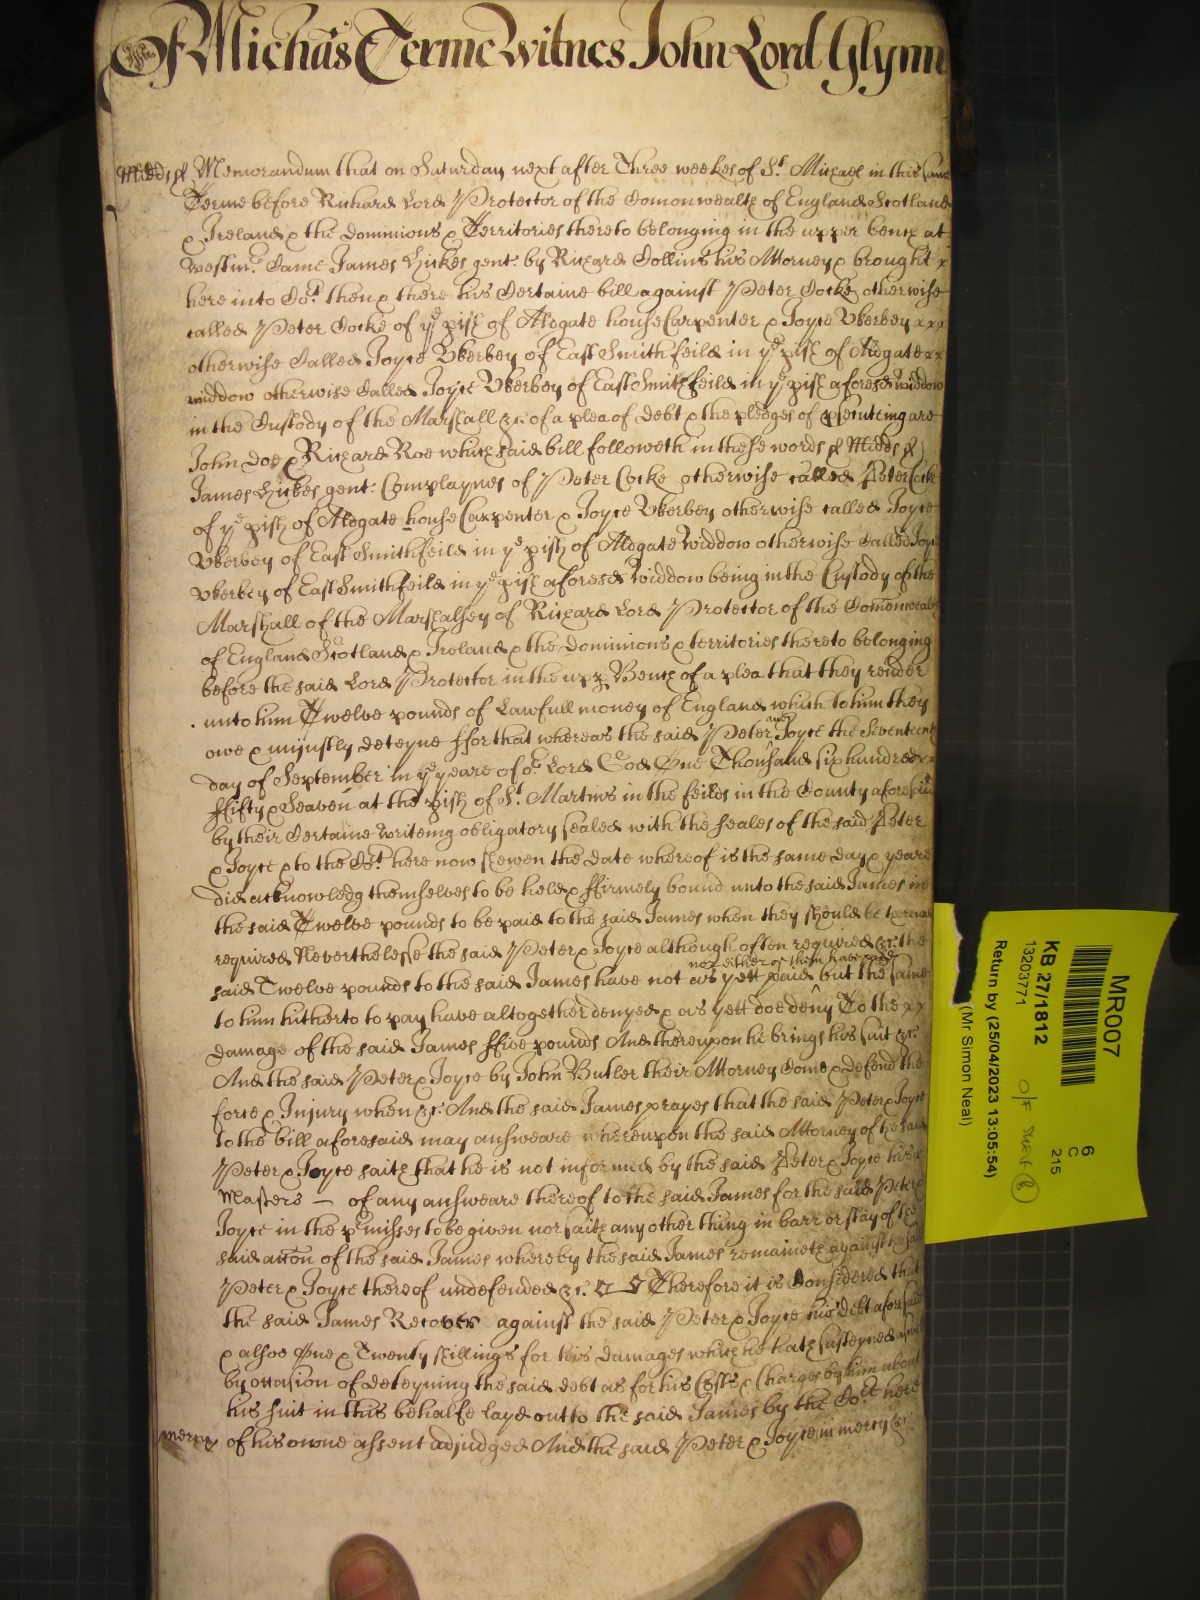 Of Michãs Terme Witnes John Lord Glynn
Midds ss Memorandum that on Saturday next after Three weekes of St. Michael in this same
Terme before Richard Lord Protector of the Comonwealth of England Scotland
& Ireland & the dominions & Territories thereto belonging in the upper bench at
Westmr. Came James Hickes gent: by Richard Collins his Attorney & brought x
here into Cort then & there his Certaine bill against Peter Cocke otherwise
called Peter Cocke of ye pish of Aldgate house Carpenter & Joyce Vkerbey xxx
otherwise Called Joyce Vkerbey of East Smithfeild in ye pish of Aldgate xx
widdow otherwise Called Joyce Vkerbey of East Smithfeild in ye pish aforesd widdow
in the Custody of the Marshall &c. of a plea of debt & the pledges of psecuteing are
John Doe & Richard Roe which said bill followeth in these words ss Midds ss
James Hickes gent: Complaynes of Peter Cocke otherwise called Peter Cocke
of ye pish of Aldgate house Carpenter & Joyce Vkerbey otherwise called Joyce
Vkerbey of East Smithfeild in ye pish of Aldgate Widdow otherwise Called Joyce
Vkerbey of East Smithfeild in ye pish aforesd Widdow being in the Custody of the
Marshall of the Marshalsey of Richard Lord Protector of the Comonwealth
of England Scotland & Ireland & the dominions & territories thereto belonging
before the said Lord Protector in the upp Bench of a plea that they render
unto him Twelve pounds of Lawfull money of England which to him they
owe & unjustly deteyne ffor that whereas the said Peter and Joyce the Seventeenth
day of September in ye yeare of or Lord God One Thousand six hundred xx
ffifty & Seaven at the pish of St. Martins in the feilds in the County aforesaid
by their Certaine Writeing obligatory sealed with the seales of the said Peter
& Joyce & to the Cort here now shewen the date whereof is the same day & yeare
did acknowledg themselves to be held & ffirmely bound unto the said James in
the said Twelve pounds to be paid to the said James when they should be thereunto
required Neverthelesse the said Peter & Joyce although often required &c. the
nor either of them have paid
said Twelve pounds to the said James have not as yett paid but the same
to him hitherto to pay have altogether denyed & as yett doe deny To the xx
damage of the said James ffive pounds And thereupon he brings his suit &c.
And the said Peter & Joyce by John Butler their Attorney Come & defend the
force & Injury when &c. And the said James prayes that the said Peter & Joyce
to the bill aforesaid may answeare whereupon the said Attorney of the said
Peter & Joyce saith that he is not informed by the said Peter & Joyce his x
Masters — of any answeare thereof to the said James for the said Peter &
Joyce in the pmisses to be given nor saith any other thing in barr or stay of the
said accon of the said James whereby the said James remaineth against the said
Peter & Joyce thereof undefended &c. Therefore it is Considered that
the said James Recover against the said Peter & Joyce his debt aforesaid
& alsoe One & Twenty shillings for his damages which he hath susteyned aswell
by occasion of deteyning the said debt as for his Costs & Charges by him about
his suit in this behalfe layd out to the said James by the Cort here
mercy of his owne assent adjudged And the said Peter & Joyce in mercy &c.
MR007
KB 27/1812
13203771
Return by (25/04/2023 13:05:54)
(Mr Simon Neal)
6
C
215